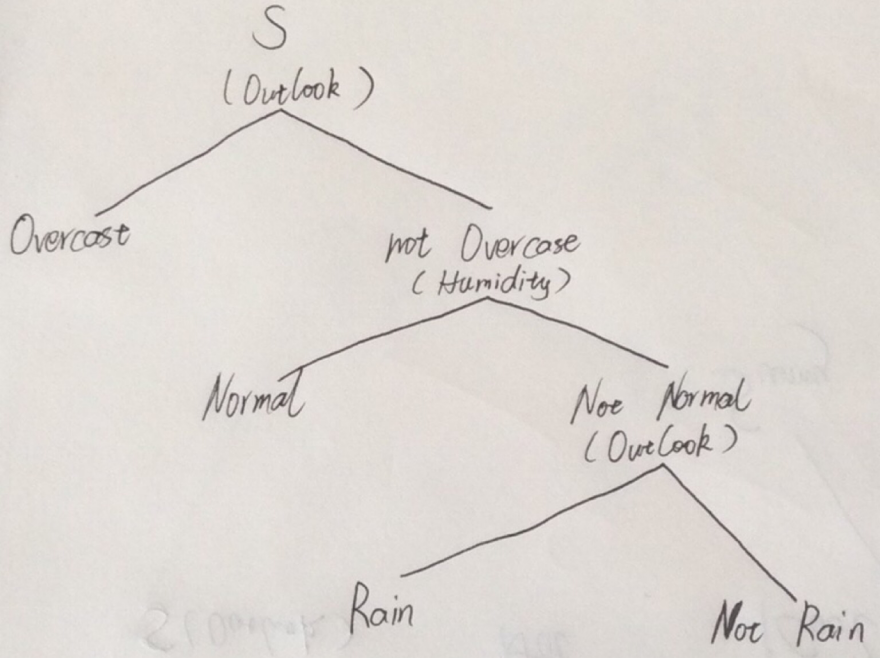 S
(Outlook)
Overcast
not Overcase
(Humidity)
Normal
Not Normal
(Outlook)
Rain
Not Rain